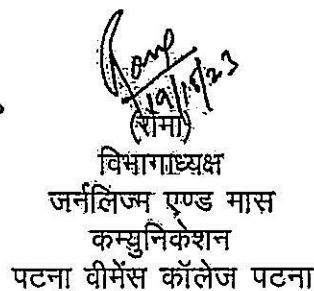 (रोमा)
विभागाध्यक्ष
जर्नलिज्म एण्ड मास
कम्युनिकेशन
पटना वीमेंस कॉलेज पटना